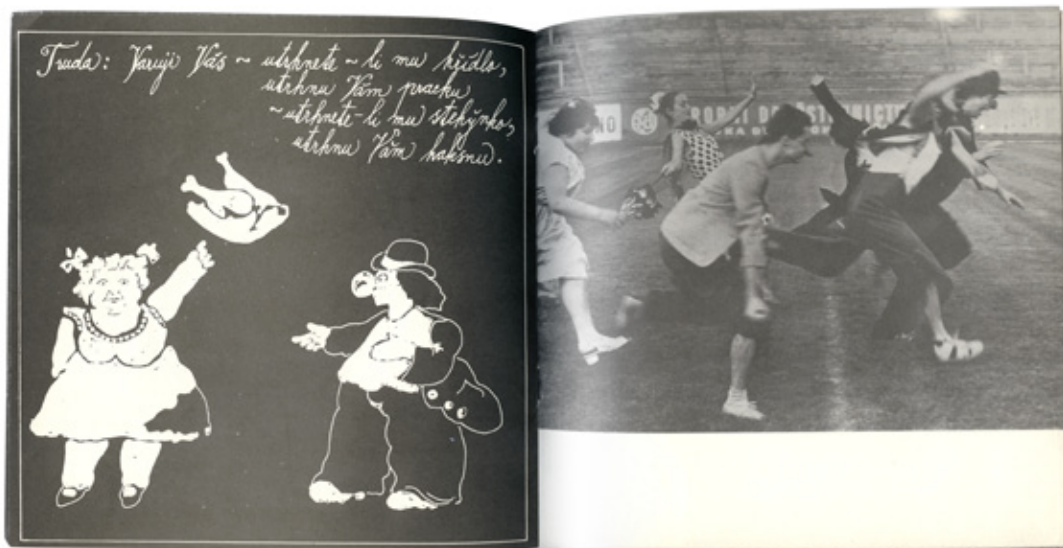 Truda: Varuji Vás ~ utrhnete~li mu křídlo,
utrhnu Vám pracku
~utrhnete-li mu stehýnko,
utrhnu Vám haksnu.